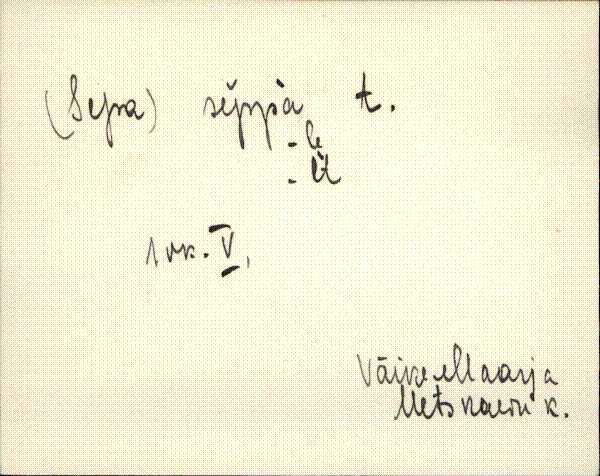 (Sepa) sĕppà t.
-le
-lt
1 vk. V,
Väike-Maarja
Metskaevu k.